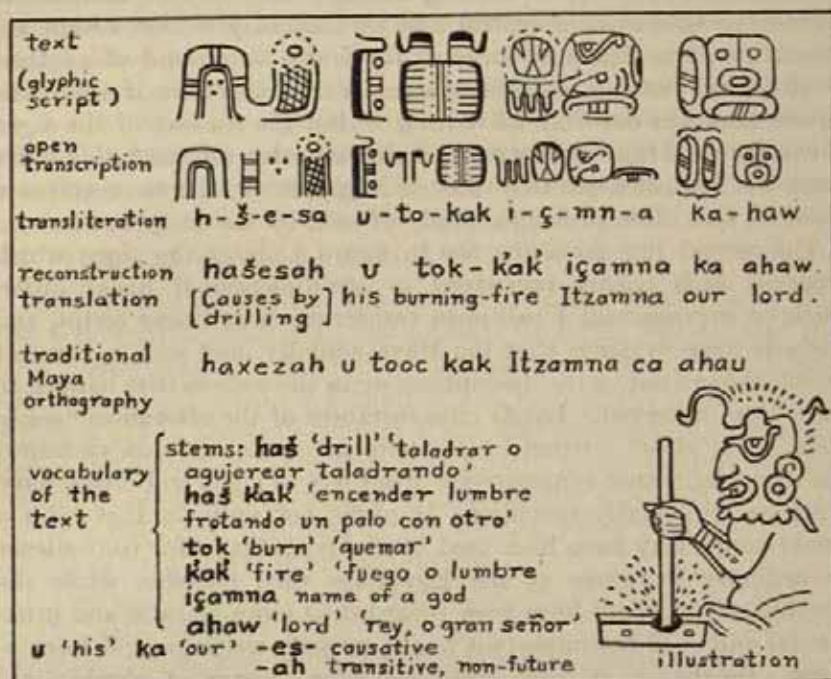 text
(glyphic
script)
open
transcription
transliteration h-š-e-sa u-to-kak i-ç-mn-a ka-haw
reconstruction hašesah u tok-ḱaḱ içamna ka ahaw.
translation [Causes by drilling] his burning-fire Itzamna our lord.
traditional
Maya
orthography
haxezah u tooc kak Itzamna ca ahau
vocabulary
of the
text
stems: haš 'drill' 'taladrar o
agujerear taladrando'
haš ḱaḱ 'encender lumbre
frotando un palo con otro'
tok 'burn' 'quemar'
ḱaḱ 'fire' 'fuego o lumbre'
içamna name of a god
ahaw 'lord' 'rey, o gran señor'
u 'his' ka 'our' -es- causative
-ah transitive, non-future
illustration